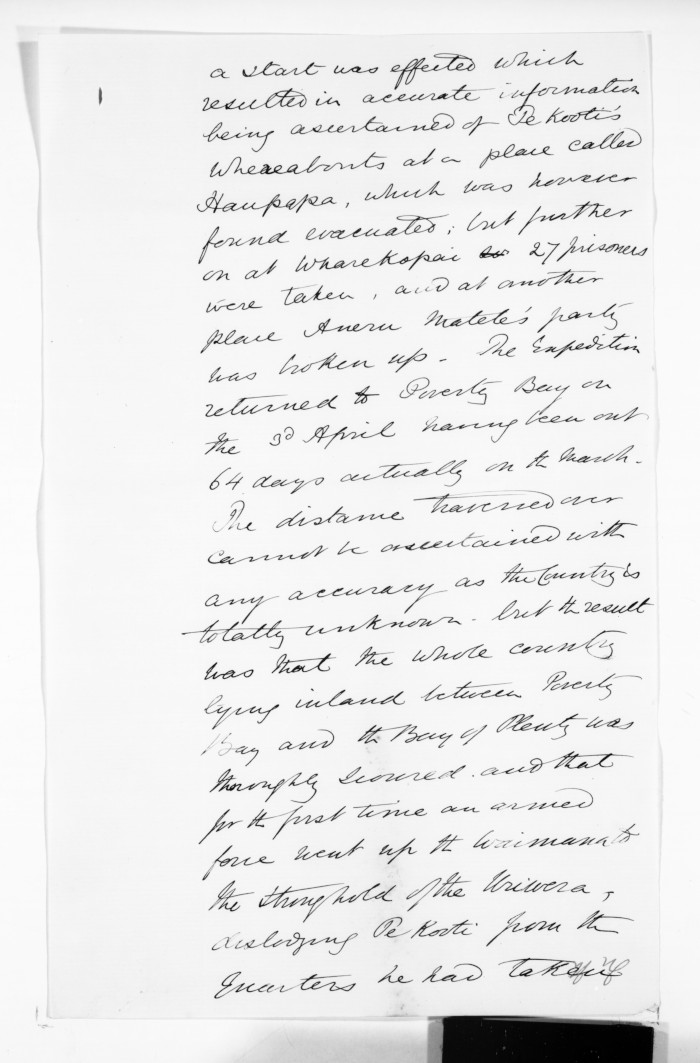 a start was effected which
resulted in accurate information
being ascertained of Te Kooti's
whereabouts at a place called
Haupapa, which was however
found evacuated; but further
on at Wharekopai 27 prisoners
were taken, and at another
place Aneru Matete's party
was broken up - The Expedition
returned to Poverty Bay on
the 3d April having been out
64 days actually on th March -
The distance traversed over
cannot be ascertained with
any accuracy as the Country is
totally unknown - but th result
was that the whole country
lying inland between Poverty
Bay and th Bay of Plenty was
thoroughly scoured - and that
for th first time an armed
force went up th Waimana to
the stronghold of the Uriwera,
dislodging Te Kooti from the
Quarters he had taken up